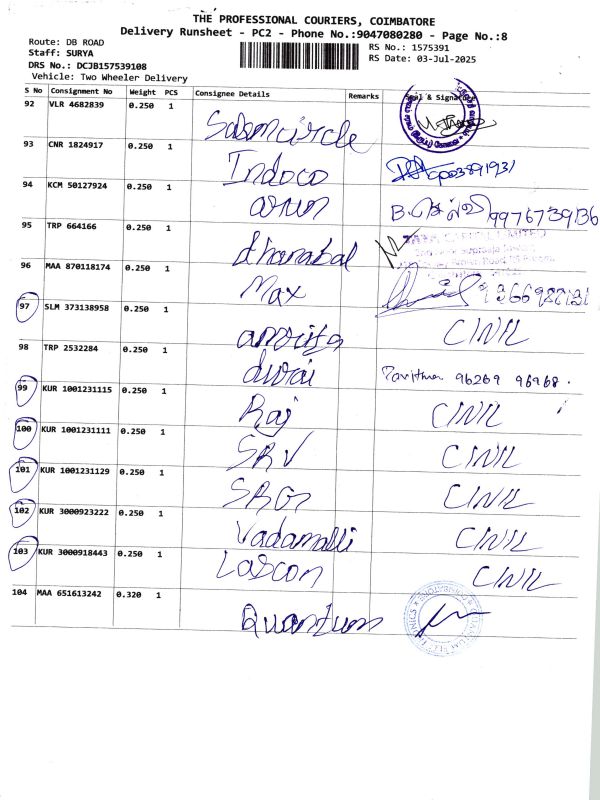 THE PROFESSIONAL COURIERS, COIMBATORE
Delivery Runsheet - PC2 - Phone No.:9047080280 - Page No.:8
Route: DB ROAD
RS No.: 1575391
Staff: SURYA
RS Date: 03-Jul-2025
DRS No.: DCJB157539108
Vehicle: Two Wheeler Delivery
S No Consignment No Weight PCS Consignee Details Remarks & Signature
92 VLR 4682839 0.250 1
93 CNR 1824917 0.250 1 Indoco
94 KCM 50127924 0.250 1 arun 9976739136
95 TRP 664166 0.250 1 dhanabal
96 MAA 870118174 0.250 1 Max
97 SLM 373138958 0.250 1 CINIL
98 TRP 2532284 0.250 1 durai 96269 96968.
99 KUR 1001231115 0.250 1 Raj CINIL
100 KUR 1001231111 0.250 1 SRV CINIL
101 KUR 1001231129 0.250 1 SRGS CINIL
102 KUR 3000923222 0.250 1 Vadamalli CINIL
103 KUR 3000918443 0.250 1 Lascon CINIL
104 MAA 651613242 0.320 1 Quantum